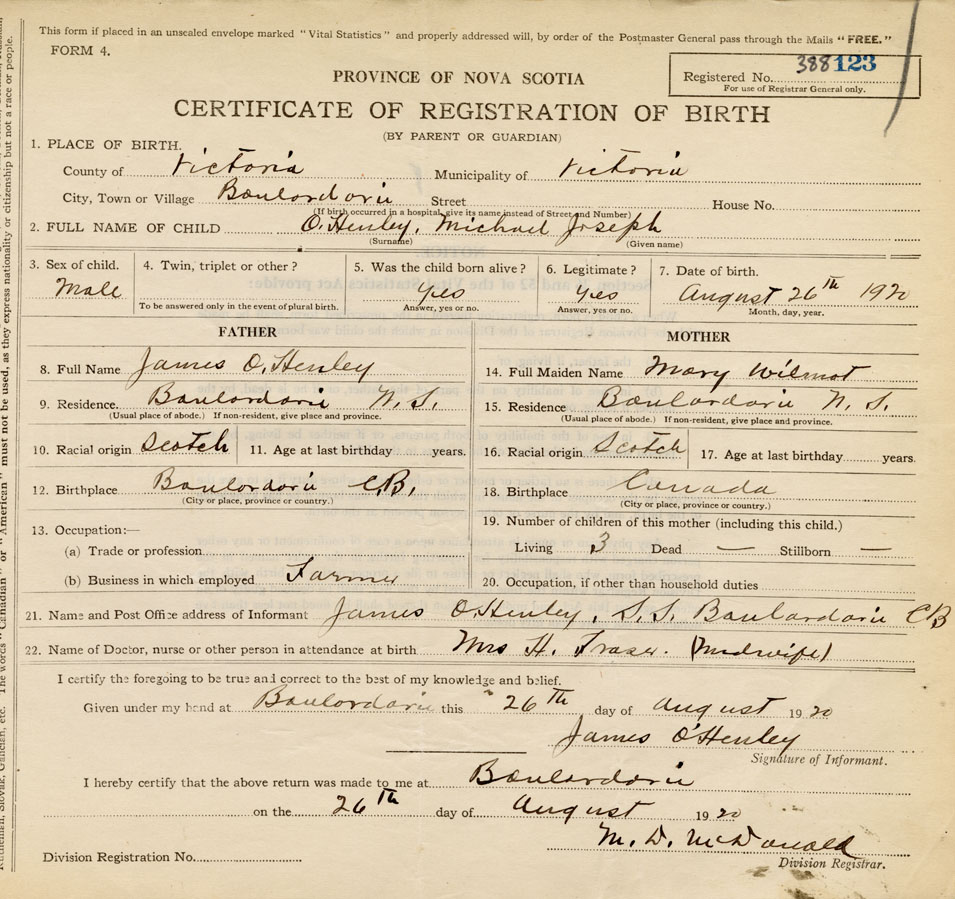 This form if placed in an unsealed envelope marked "Vital Statistics" and properly addressed will, by order of the Postmaster General pass through the Mails "FREE."
FORM 4.
388123
PROVINCE OF NOVA SCOTIA
Registered No.
For use of Registrar General only.
CERTIFICATE OF REGISTRATION OF BIRTH
(BY PARENT OR GUARDIAN)
1. PLACE OF BIRTH.
County of Victoria Municipality of Victoria
City, Town or Village Boulardarie Street House No.
(If birth occurred in a hospital, give its name instead of Street and Number)
2. FULL NAME OF CHILD O'Henley, Michael Joseph
(Surname) (Given name)
3. Sex of child. 4. Twin, triplet or other? 5. Was the child born alive? 6. Legitimate? 7. Date of birth.
Male yes yes August 26th 1920
To be answered only in the event of plural birth. Answer, yes or no. Answer, yes or no. Month, day, year.
FATHER MOTHER
8. Full Name James O'Henley 14. Full Maiden Name Mary Wilmot
9. Residence. Boulardarie N. S. 15. Residence Boulardarie N. S.
(Usual place of abode.) If non-resident, give place and province. (Usual place of abode.) If non-resident, give place and province.
10. Racial origin Scotch 11. Age at last birthday years. 16. Racial origin Scotch 17. Age at last birthday years.
12. Birthplace Boulardarie C.B. 18. Birthplace Canada
(City or place, province or country.) (City or place, province or country.)
13. Occupation:— 19. Number of children of this mother (including this child.)
(a) Trade or profession Living 3 Dead — Stillborn —
(b) Business in which employed Farmer 20. Occupation, if other than household duties
21. Name and Post Office address of Informant James O'Henley, S.S. Boulardarie CB
22. Name of Doctor, nurse or other person in attendance at birth Mrs H. Fraser. (Midwife)
I certify the foregoing to be true and correct to the best of my knowledge and belief.
Given under my hand at Boulardarie this 26th day of August 1920
James O'Henley
Signature of Informant.
I hereby certify that the above return was made to me at Boulardarie
on the 26th day of August 1920
M. D. McDonald
Division Registration No. Division Registrar.